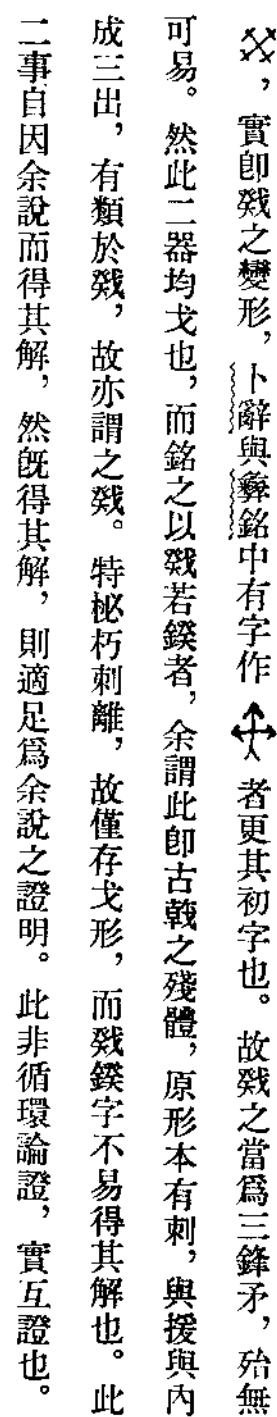 ，實卽戣之變形，卜辭與彝銘中有字作者更其初字也。故戣之當爲三鋒矛，殆無
可易。然此二器均戈也，而銘之以戣若鍨者，余謂此卽古戟之殘體，原形本有刺，與援與內
成三出，有類於戣，故亦謂之戣。特柲朽刺離，故僅存戈形，而戣鍨字不易得其解也。此
二事自因余說而得其解，然旣得其解，則適足爲余說之證明。此非循環論證，實互證也。